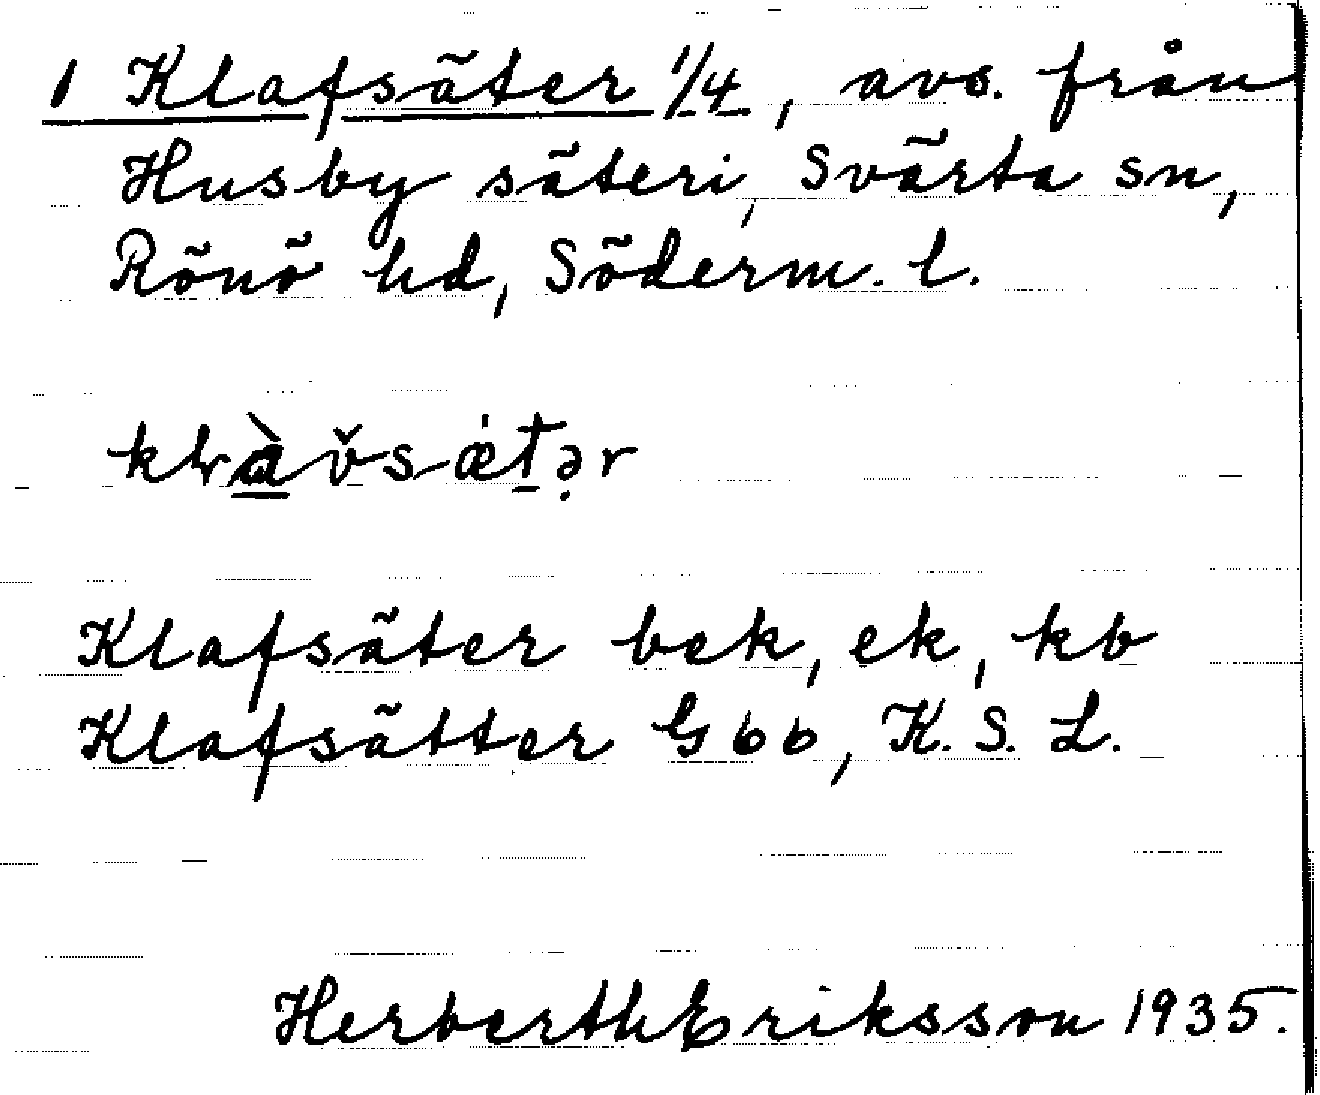 1 Klafsäter 1/4, avs. från
Husby säteri, Svärta sn,
Rönö hd, Söderm. l.
Klafsäter bek, ek, kb
Klafsätter Gbb, K. S. L.
Herberth Eriksson 1935.